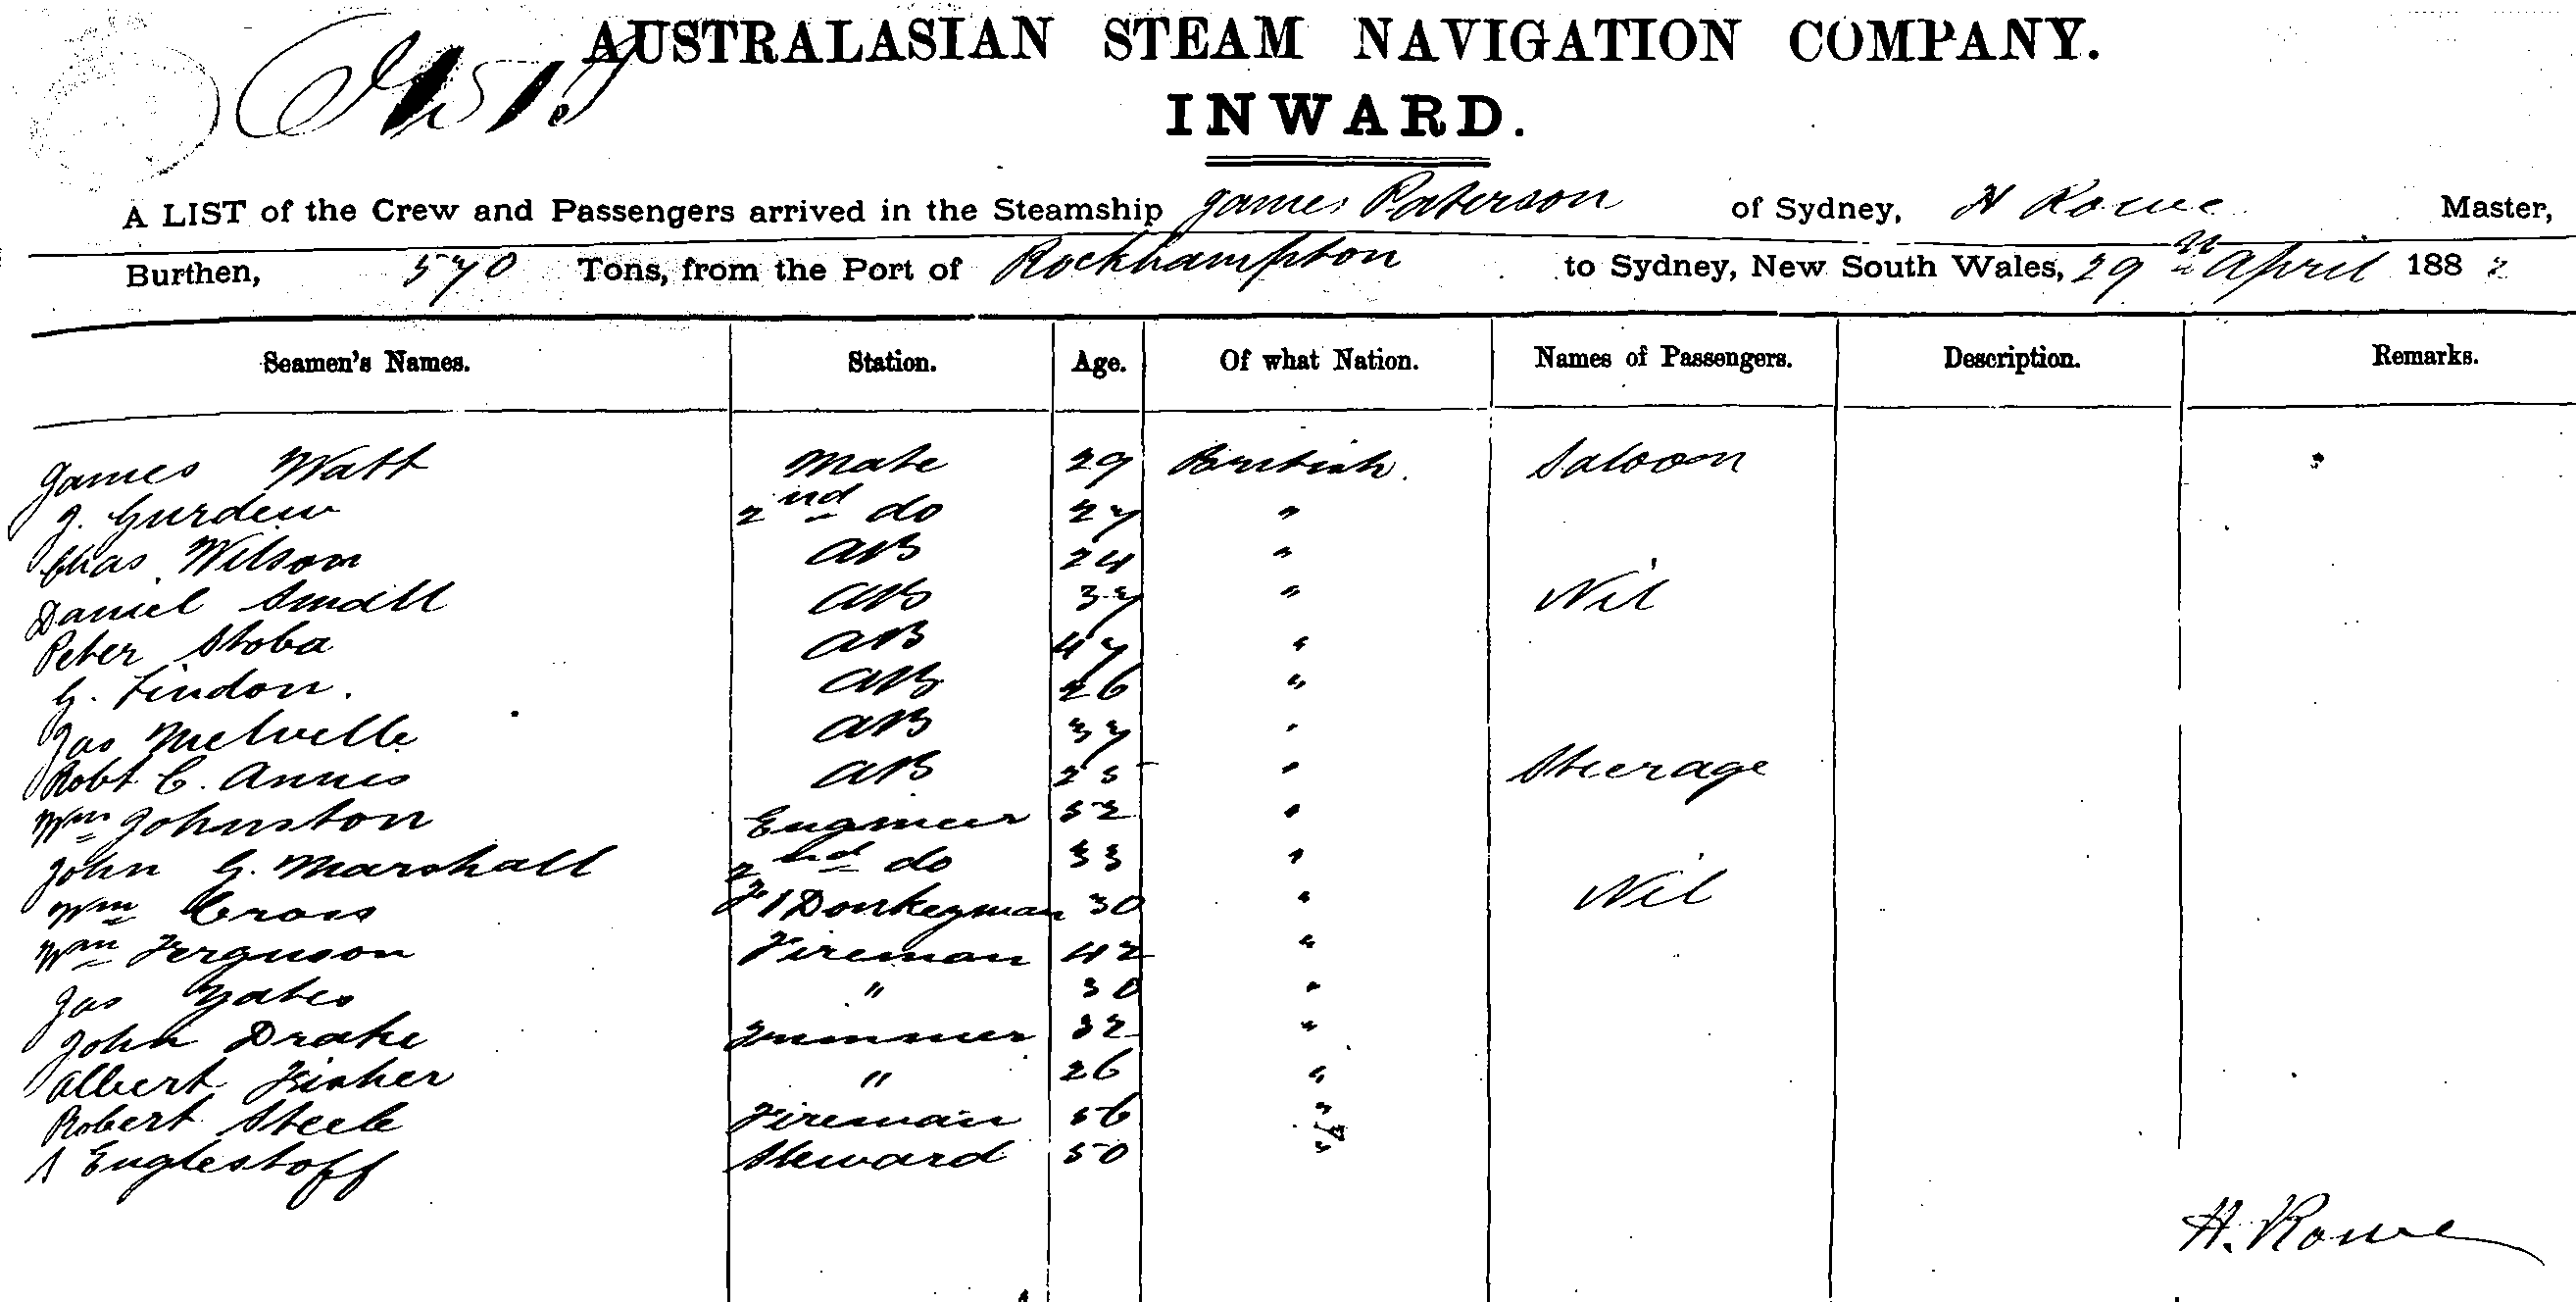 AUSTRALASIAN STEAM NAVIGATION COMPANY.
INWARD.
A LIST of the Crew and Passengers arrived in the Steamship James Paterson of Sydney, H Rowe Master,
Burthen, 570 Tons, from the Port of Rockhampton to Sydney, New South Wales, 29th April 1882
Seamen's Names. Station. Age. Of what Nation. Names of Passengers. Description. Remarks.
James Watt Mate 29 British. Saloon
J. Gurdew 2nd do 27 "
Chas Wilson AB 24 "
Daniel Small AB 37 " Nil
Peter Stoba AB 47 "
G. Lindon. AB 26 "
Jas Melville AB 37 "
Robt C. Annis AB 25 " Steerage
Wm Johnston Engineer 52 "
John G. Marshall 2nd do 33 "
Wm Cross Donkeyman 30 " Nil
Wm Ferguson Fireman 42 "
Jas Yates " 30 "
John Drake Trimmer 32 "
Albert Fisher " 26 "
Robert Steele Fireman 56 "
Englestoff Steward 50 "
H. Rowe